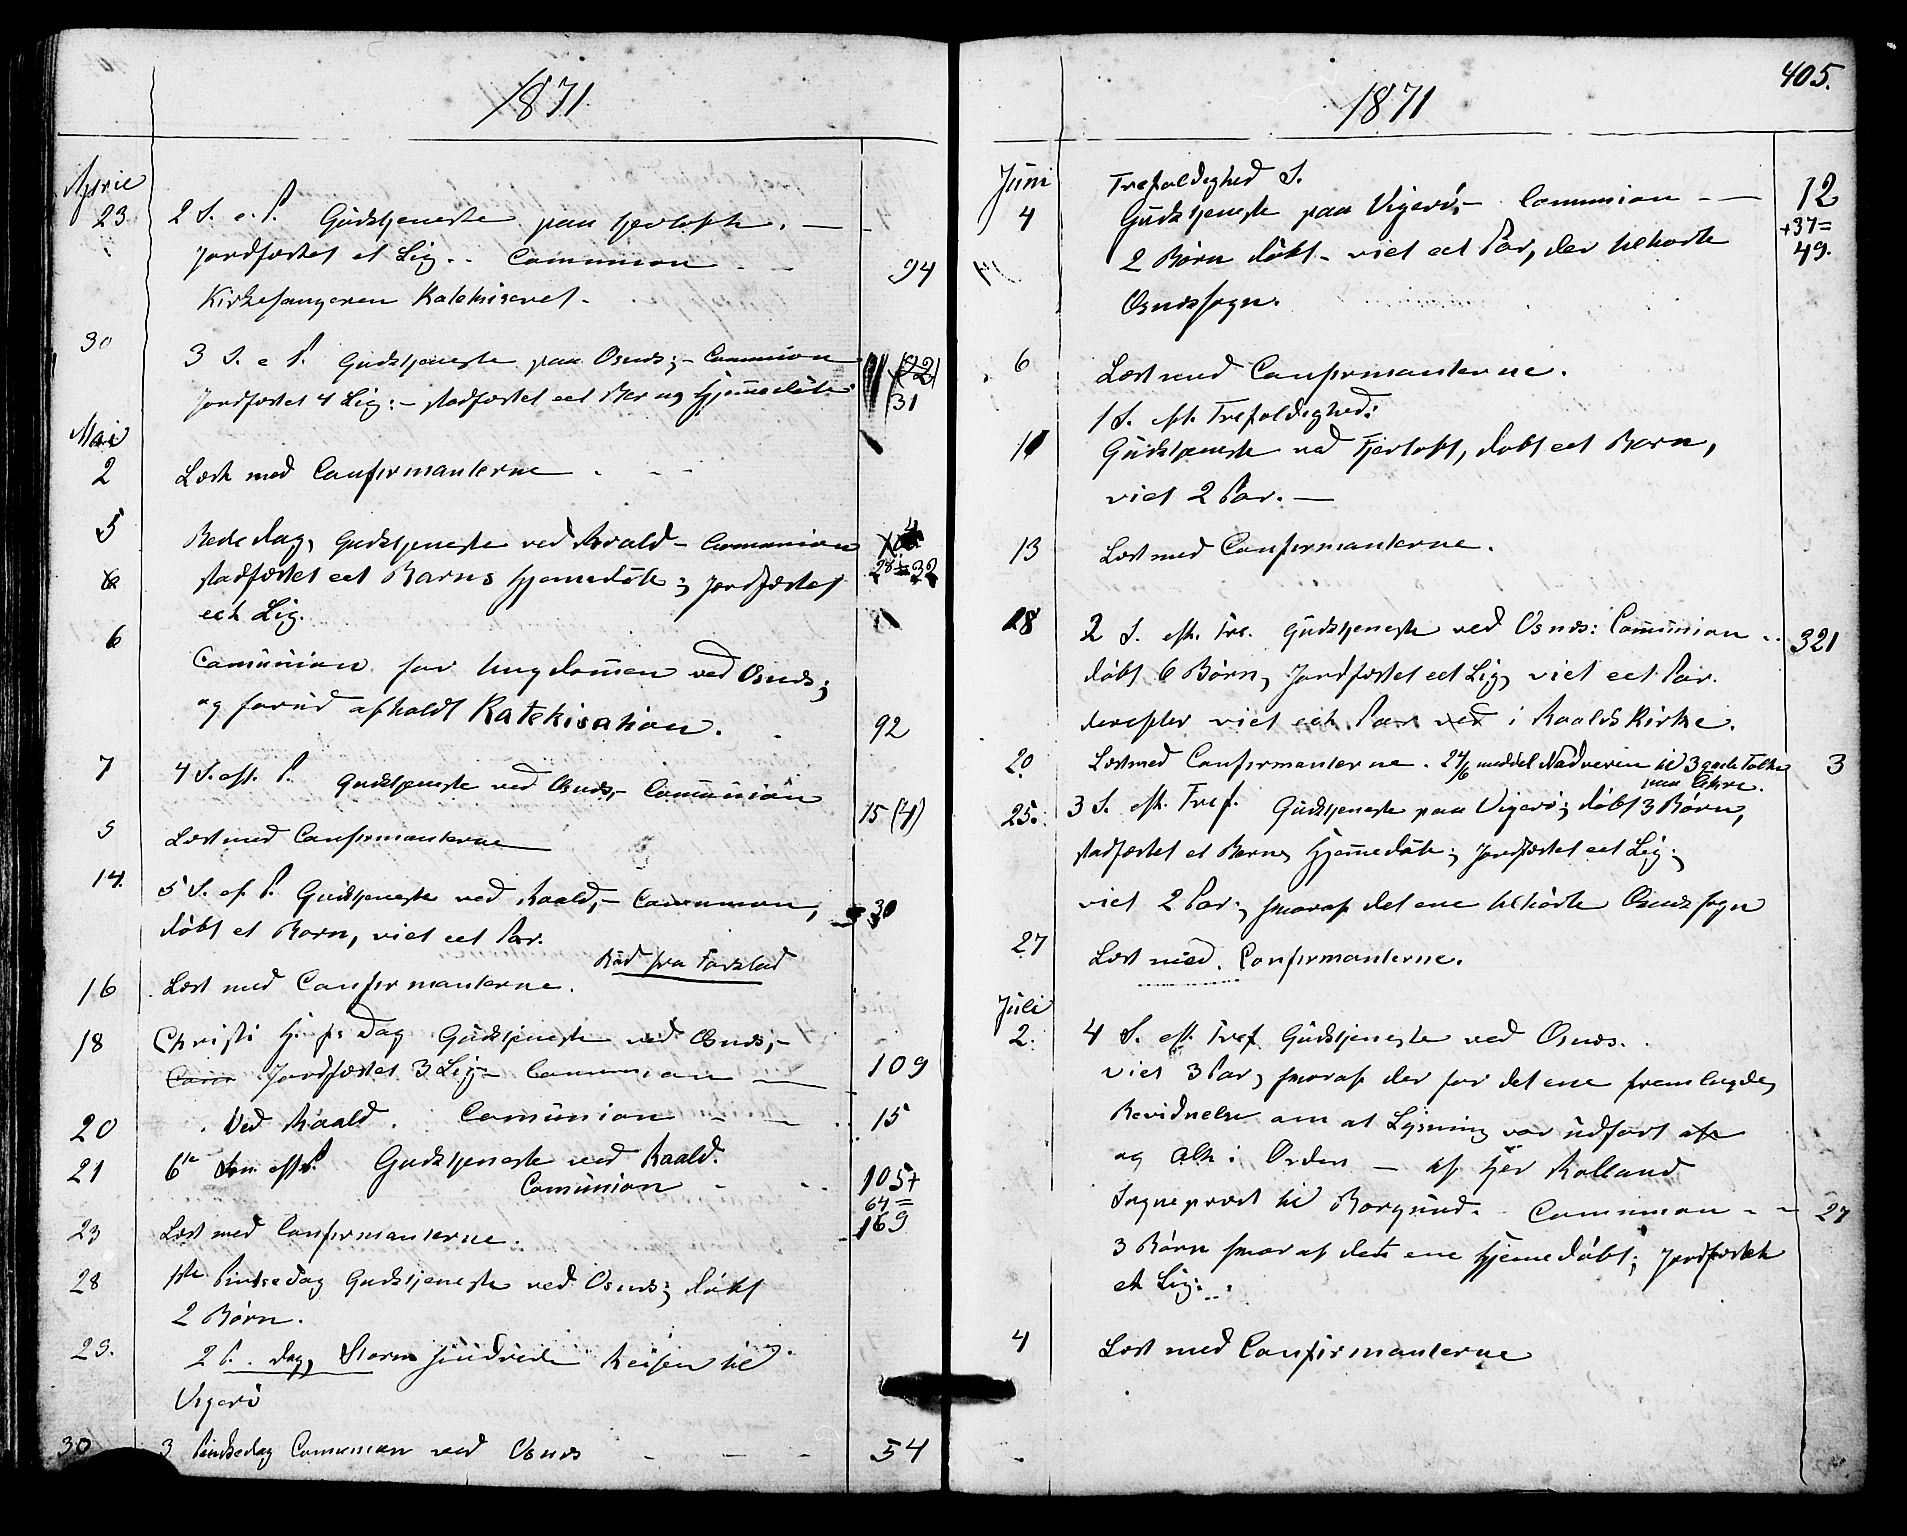 1871
April
23 2 S. e. P. Gudstjeneste paa Fjertoft. —
Jordfæstet et Lig. - Communion - - 94
Kirkesangeren Katekiseret.
30 3 S. e P. Gudstjeneste paa Osnæs; - Communion (22)
Jordfæstet 4 Lig: - stadfæstet eet Børns Hjemmedåb 31
Mai
2 Læst med Confirmanterne - - -
5 Bededag, Gudstjeneste ved Roald - Communion 4
6 stadfæstet eet Barns Hjemmedåb; jordfæstet 28 = 32
eet Lig.
6 Communion for Ungdommen ved Osnæs;
og forud afholdt Katekisation. 92
7 4 S. eft. P. Gudstjeneste ved Osnæs, - Communion 15 (4)
9 Læst med Confirmanterne
14. 5 S. ef. P. Gudstjeneste ved Roald, - Communion, 30
døbt et Barn, viet eet Par.
Bud fra
16 Læst med Confirmanterne.
18 Christi H. f. Dag Gudstjeneste ved Osnæs, -
Com Jordfæstet 3 Lig - Communion — 109
20 Ved Roald. Communion - - 15
21 6te Søn. eft. P. Gudstjeneste ved Roald.
Communion - - 105+
64 =
169
23 Læst med Confirmanterne.
28 1ste Pintsedag Gudstjeneste ved Osnæs; døbt
2 Børn.
29. 2 P. dag, Storm hindrede Reisen til
Vigerö
30 3 Pintsedag Communion ved Osnæs - - - 54
405.
1871
Juni Trefoldighed S.
4 Gudstjeneste paa Vigerö; - Communion - — 12
+37=
2 Børn døbt - viet eet Par, der tilhørte 49.
Osnæssogn.
6 Læst med Confirmanterne.
1 S. eft. Trefoldighed:
11 Gudstjeneste ved Fjertoft, døbt eet Barn,
viet 2 Par. —
13 Læst med Confirmanterne.
18 2 S. eft. Tre. Gudstjeneste ved Osnæs: Communion - - 321
døbt 6 Børn, Jordfæstet eet Lig, viet eet Par.
derefter viet eet Par ved i Roalds Kirke.
20 Læst med Confirmanterne. 24/6 meddel Nadveren til 3 Folk 3
paa
25. 3 S. eft. Tref. Gudstjeneste paa Vigerö; døbt 3 Børn,
stadfæstet et Børns Hjemmedåb; Jordfæstet eet Lig;
viet 2 Par; hvoraf det ene tilhørte Osnæs sogn
27 Læst med Confirmanterne.
Juli
2. 4 S. eft. Tref Gudstjeneste ved Osnæs.
viet 3 Par, hvoraf der for det ene fremlagdes
Bevidnelse om at Lysning var udført
og Alt i Orden — af Hr Rolland
Sogneprest til Borgund. - Communion - - 27
3 Børn hvoraf det ene Hjemmedöbt; Jordfæstet
et Lig:
4 Læst med Confirmanterne